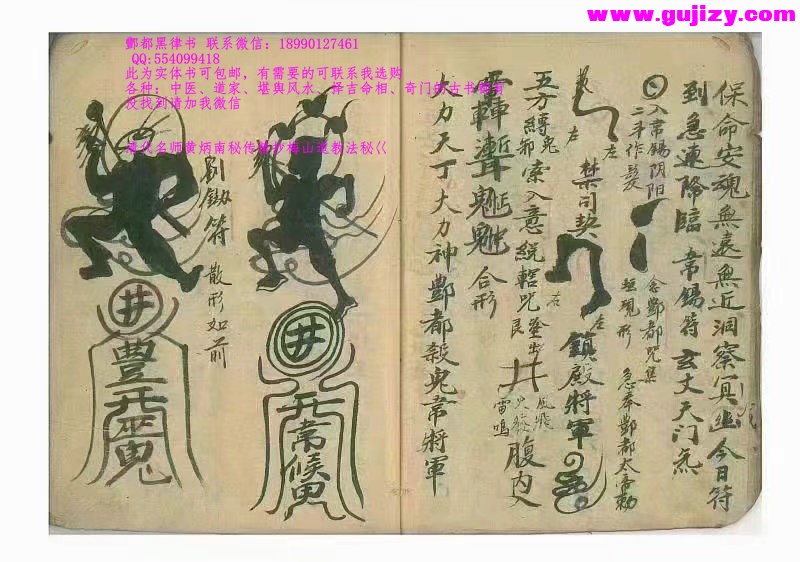 www.gujizy.com
酆都黑律书 联系微信：18990127461
QQ:554099418
此为实体书可包邮，有需要的可联系我选购
各种：中医、道家、堪舆风水、择吉命相、奇门的古书都有
没找到请加我微信
清代名师黄炳南秘传手抄梅山道教法秘巜
保命安魂無遠無近洞察冥幽今日符
到急速降臨 韋錫符 玄丈天门炁
入韋錫阴阳
二手作髮
念酆都咒集
急奉酆都太帝勅
左
左
禁司契
右
左
鎮殿將軍
五方縛鬼
索入意統轄咒
登出
井
風飛
火發
雷鳴
腹内
合形
大力天丁大力神酆都殺鬼韋將軍
井
散形如前
井